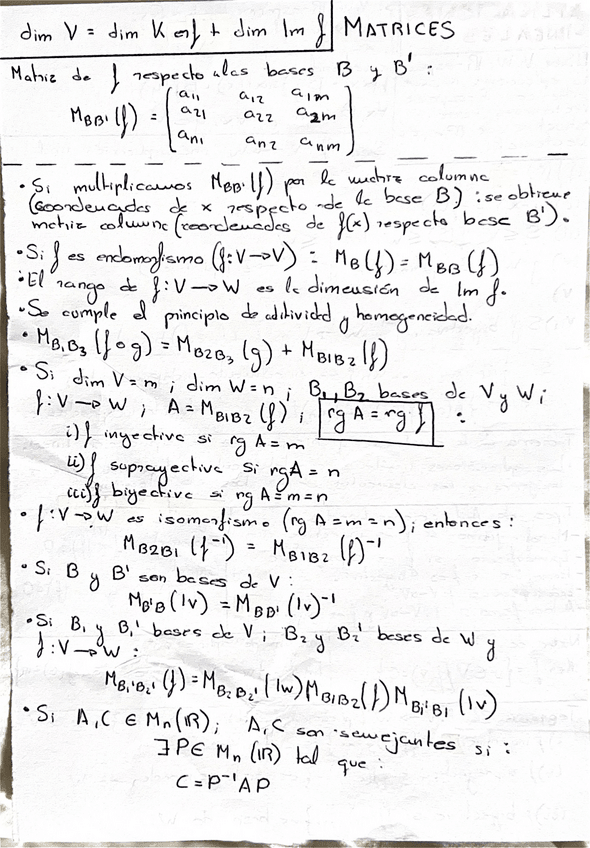 dim V = dim Ker f + dim Im f MATRICES
Matriz de f respecto a las bases B y B' :
a11 a12 a1m
M BB' (f) = ( a21 a22 a2m )
an1 an2 anm
• Si multiplicamos M BB' (f) por la matriz columna
(coordenadas de x respecto de la base B) : se obtiene
matriz columna (coordenadas de f(x) respecto base B').
• Si f es endomorfismo (f: V → V) : M B (f) = M BB (f)
• El rango de f: V → W es la dimensión de Im f.
• Se cumple el principio de aditividad y homogeneidad.
• M B1B3 (f o g) = M B2B3 (g) + M B1B2 (f)
• Si dim V = m ; dim W = n ; B1, B2 bases de V y W ;
f: V → W ; A = M B1B2 (f) ; rg A = rg f :
i) f inyectiva si rg A = m
ii) f suprayectiva si rg A = n
iii) f biyectiva si rg A = m = n
• f: V → W es isomorfismo (rg A = m = n) ; entonces :
M B2B1 (f⁻¹) = M B1B2 (f)⁻¹
• Si B y B' son bases de V :
M B'B (1v) = M BB' (1v)⁻¹
• Si B1 y B1' bases de V ; B2 y B2' bases de W y
f: V → W :
M B1'B2' (f) = M B2B2' (1w) M B1B2 (f) M B1'B1 (1v)
• Si A, C ∈ Mn(IR) ; A, C son semejantes si :
∃ P ∈ Mn (IR) tal que :
C = P⁻¹AP